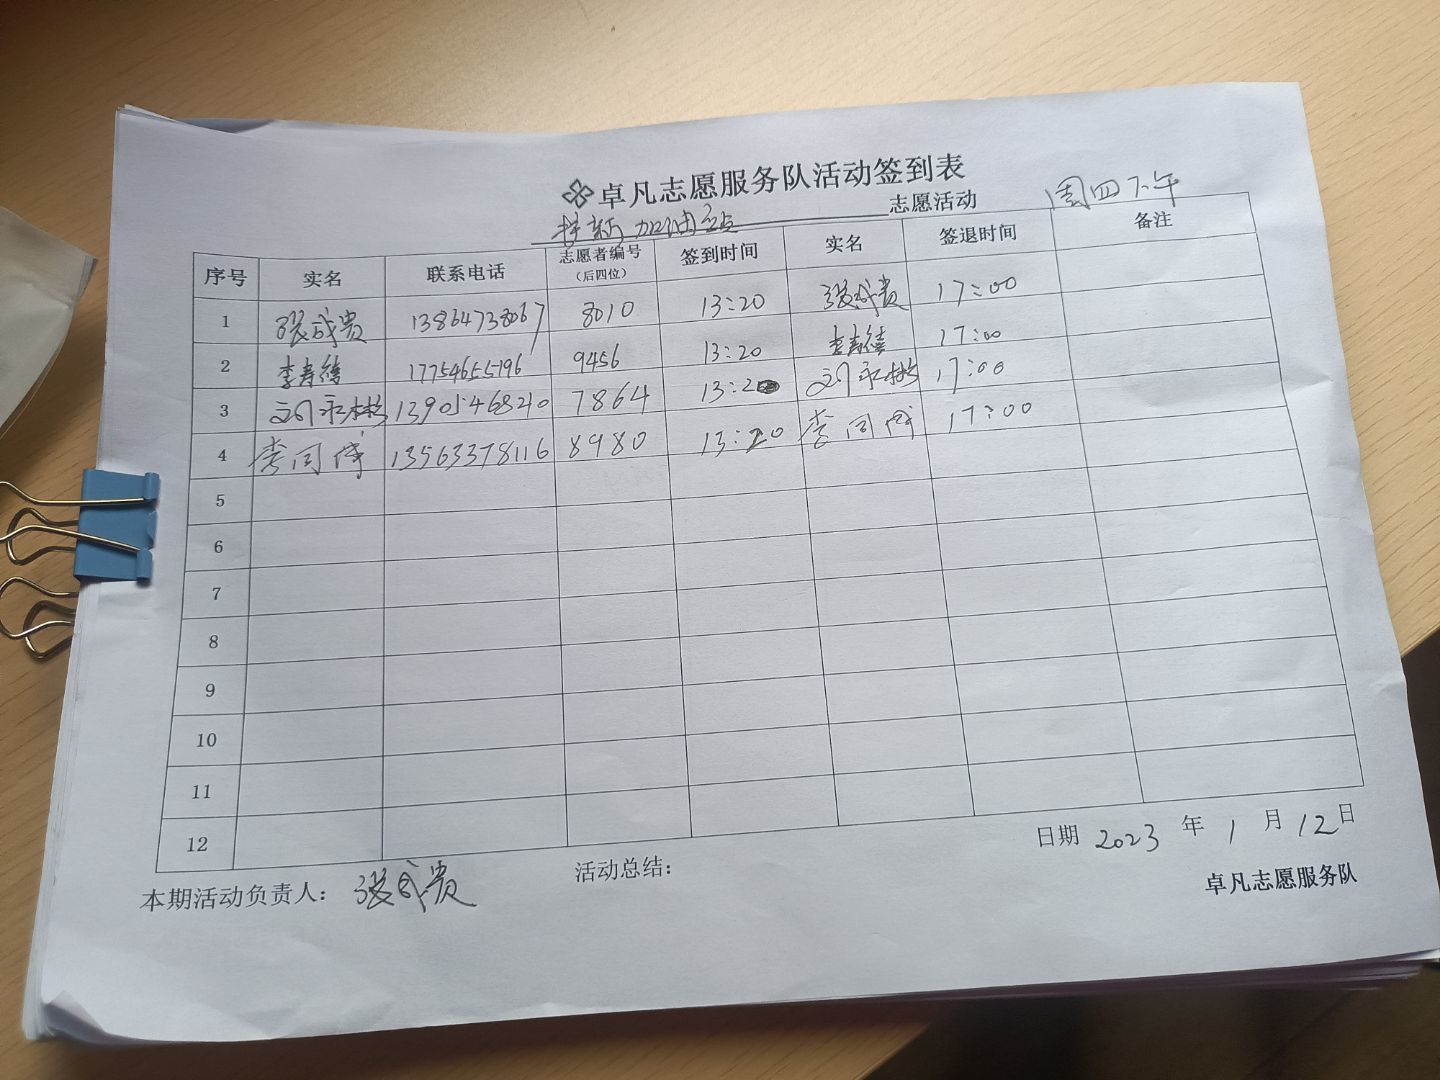 卓凡志愿服务队活动签到表
加油站 志愿活动 周四下午
序号 实名 联系电话 志愿者编号（后四位） 签到时间 实名 签退时间 备注
1 张成贵 13864738067 8010 13:20 张成贵 17:00
2 李寿 17754655196 9456 13:20 李寿 17:00
3 刘永 13905468210 7864 13:20 刘永 17:00
4 李同 13563378116 8980 13:20 李同 17:00
5
6
7
8
9
10
11
12
日期 2023 年 1 月 12 日
本期活动负责人： 张成贵 活动总结：
卓凡志愿服务队